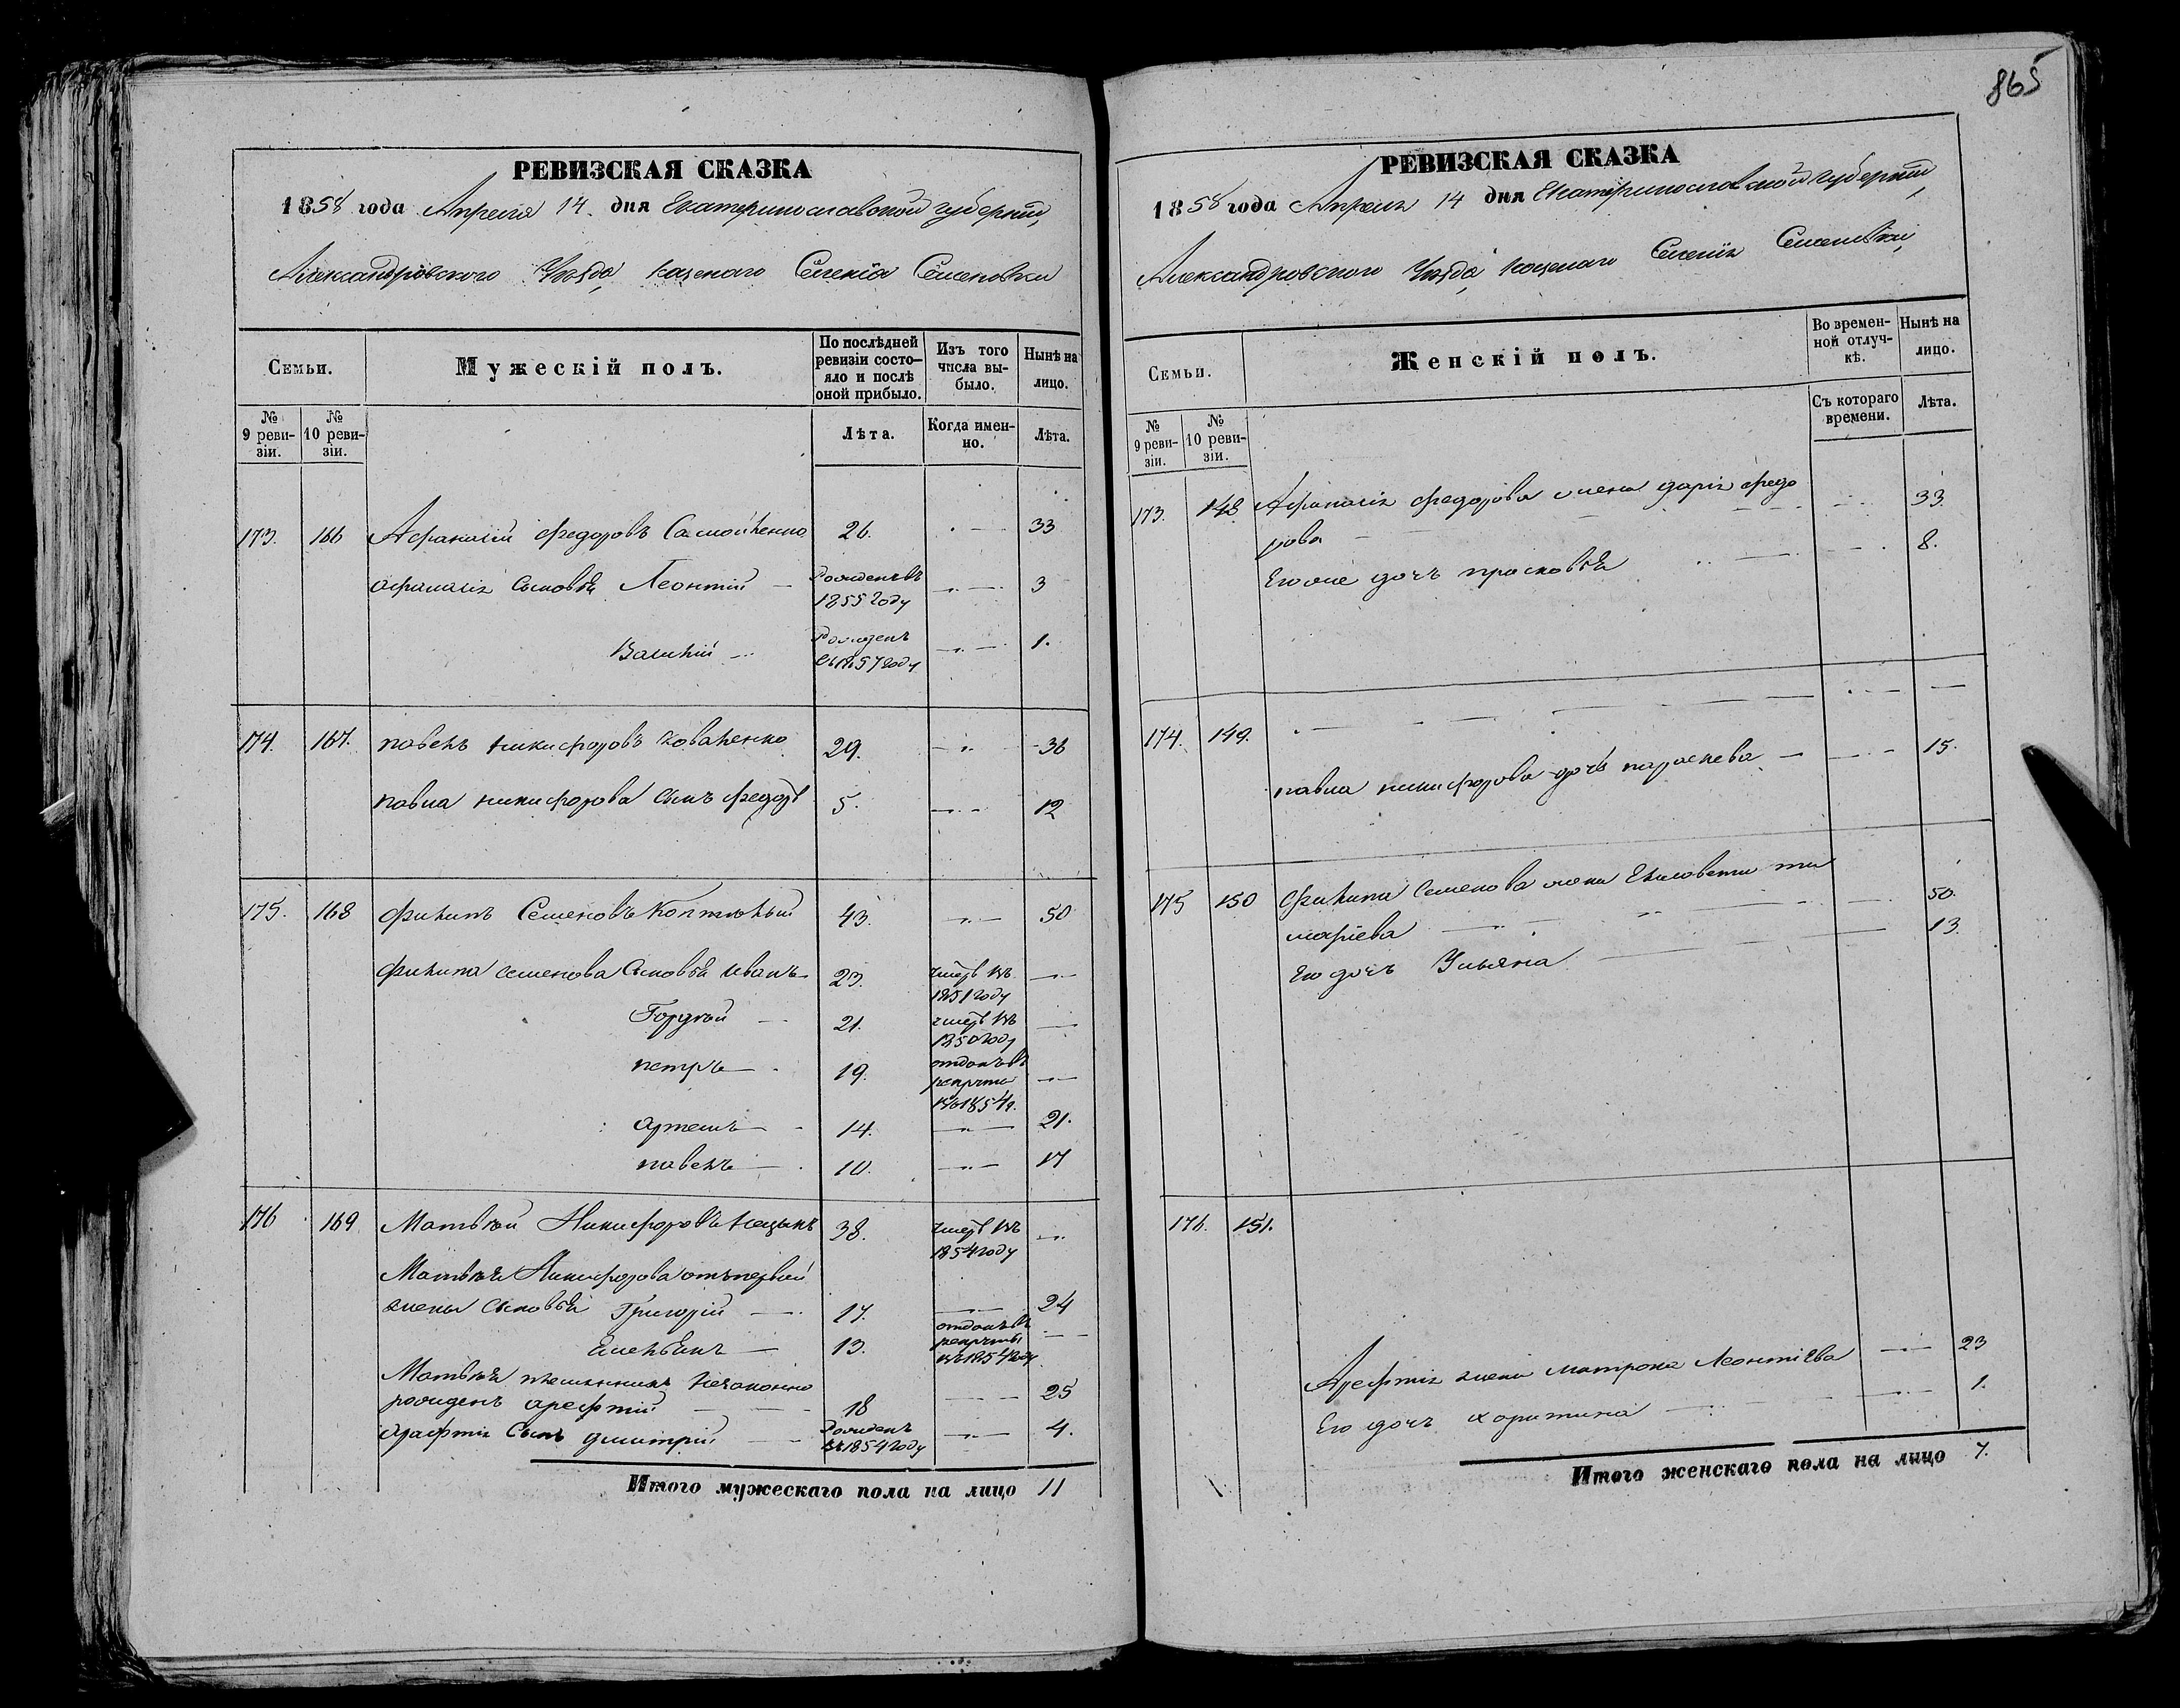 РЕВИЗСКАЯ СКАЗКА
1858 года Апреля 14 дня Екатеринославской губерніи,
Александровского Уезда, казенаго Селенія Семеновки
Семьи. Мужескій полъ. По послѣдней ревизіи состояло и послѣ оной прибыло. Изъ того числа выбыло. Нынѣ на лицо.
№ 9 ревизіи. № 10 ревизіи. Лѣта. Когда именно. Лѣта.
173. 166 Афанасій Федоровъ Самойленко 26. 33
Афанасія Сыновья Леонтій Рожденъ въ 1855 году 3
Василій Рожденъ въ 1857 году 1.
174. 167. павелъ никифоровъ коваленко 29. 36
павла никифорова сынъ федоръ 5. 12
175. 168 филипъ Семеновъ 43. 50
филипа семенова Сыновья иванъ 23. умеръ въ 1851 году
Гордѣй 21. умеръ въ 1850 году
петръ 19. отданъ въ рекруты въ 1854 г.
артемъ 14. 21.
павелъ 10. 17
176 169 Матвѣй Никифоровъ 38. умеръ въ 1854 году
Матвѣя Никифорова отъ первой
жены сыновья Григорій 17. 24
Емельянъ 13. отданъ въ рекруты въ 1854 году
Матвѣя племянникъ незаконно
рожденъ арефтій 18 25
арефтія Сынъ дмитрій Рожденъ въ 1854 году 4.
Итого мужескаго пола на лицо 11
865
РЕВИЗСКАЯ СКАЗКА
1858 года Апреля 14 дня Екатеринославской губерніи,
Александровского Уезда, казенаго Селенія Семеновки,
Семьи. Женскій полъ. Во временной отлучкѣ. Нынѣ на лицо.
№ 9 ревизіи. № 10 ревизіи. Съ котораго времени. Лѣта.
173. 148 Афанасія федорова жена дарія федо
рова 33.
Его же дочь прасковья 8.
174. 149.
павла никифорова дочь параскева 15.
175 150 филипа Семенова жена Елисовета ти
мофіева 50.
Его дочь Ульяна 13.
176. 151.
Арефтія жена матрона Леонтіева 23
Его дочь харитина 1.
Итого женскаго пола на лицо 7.